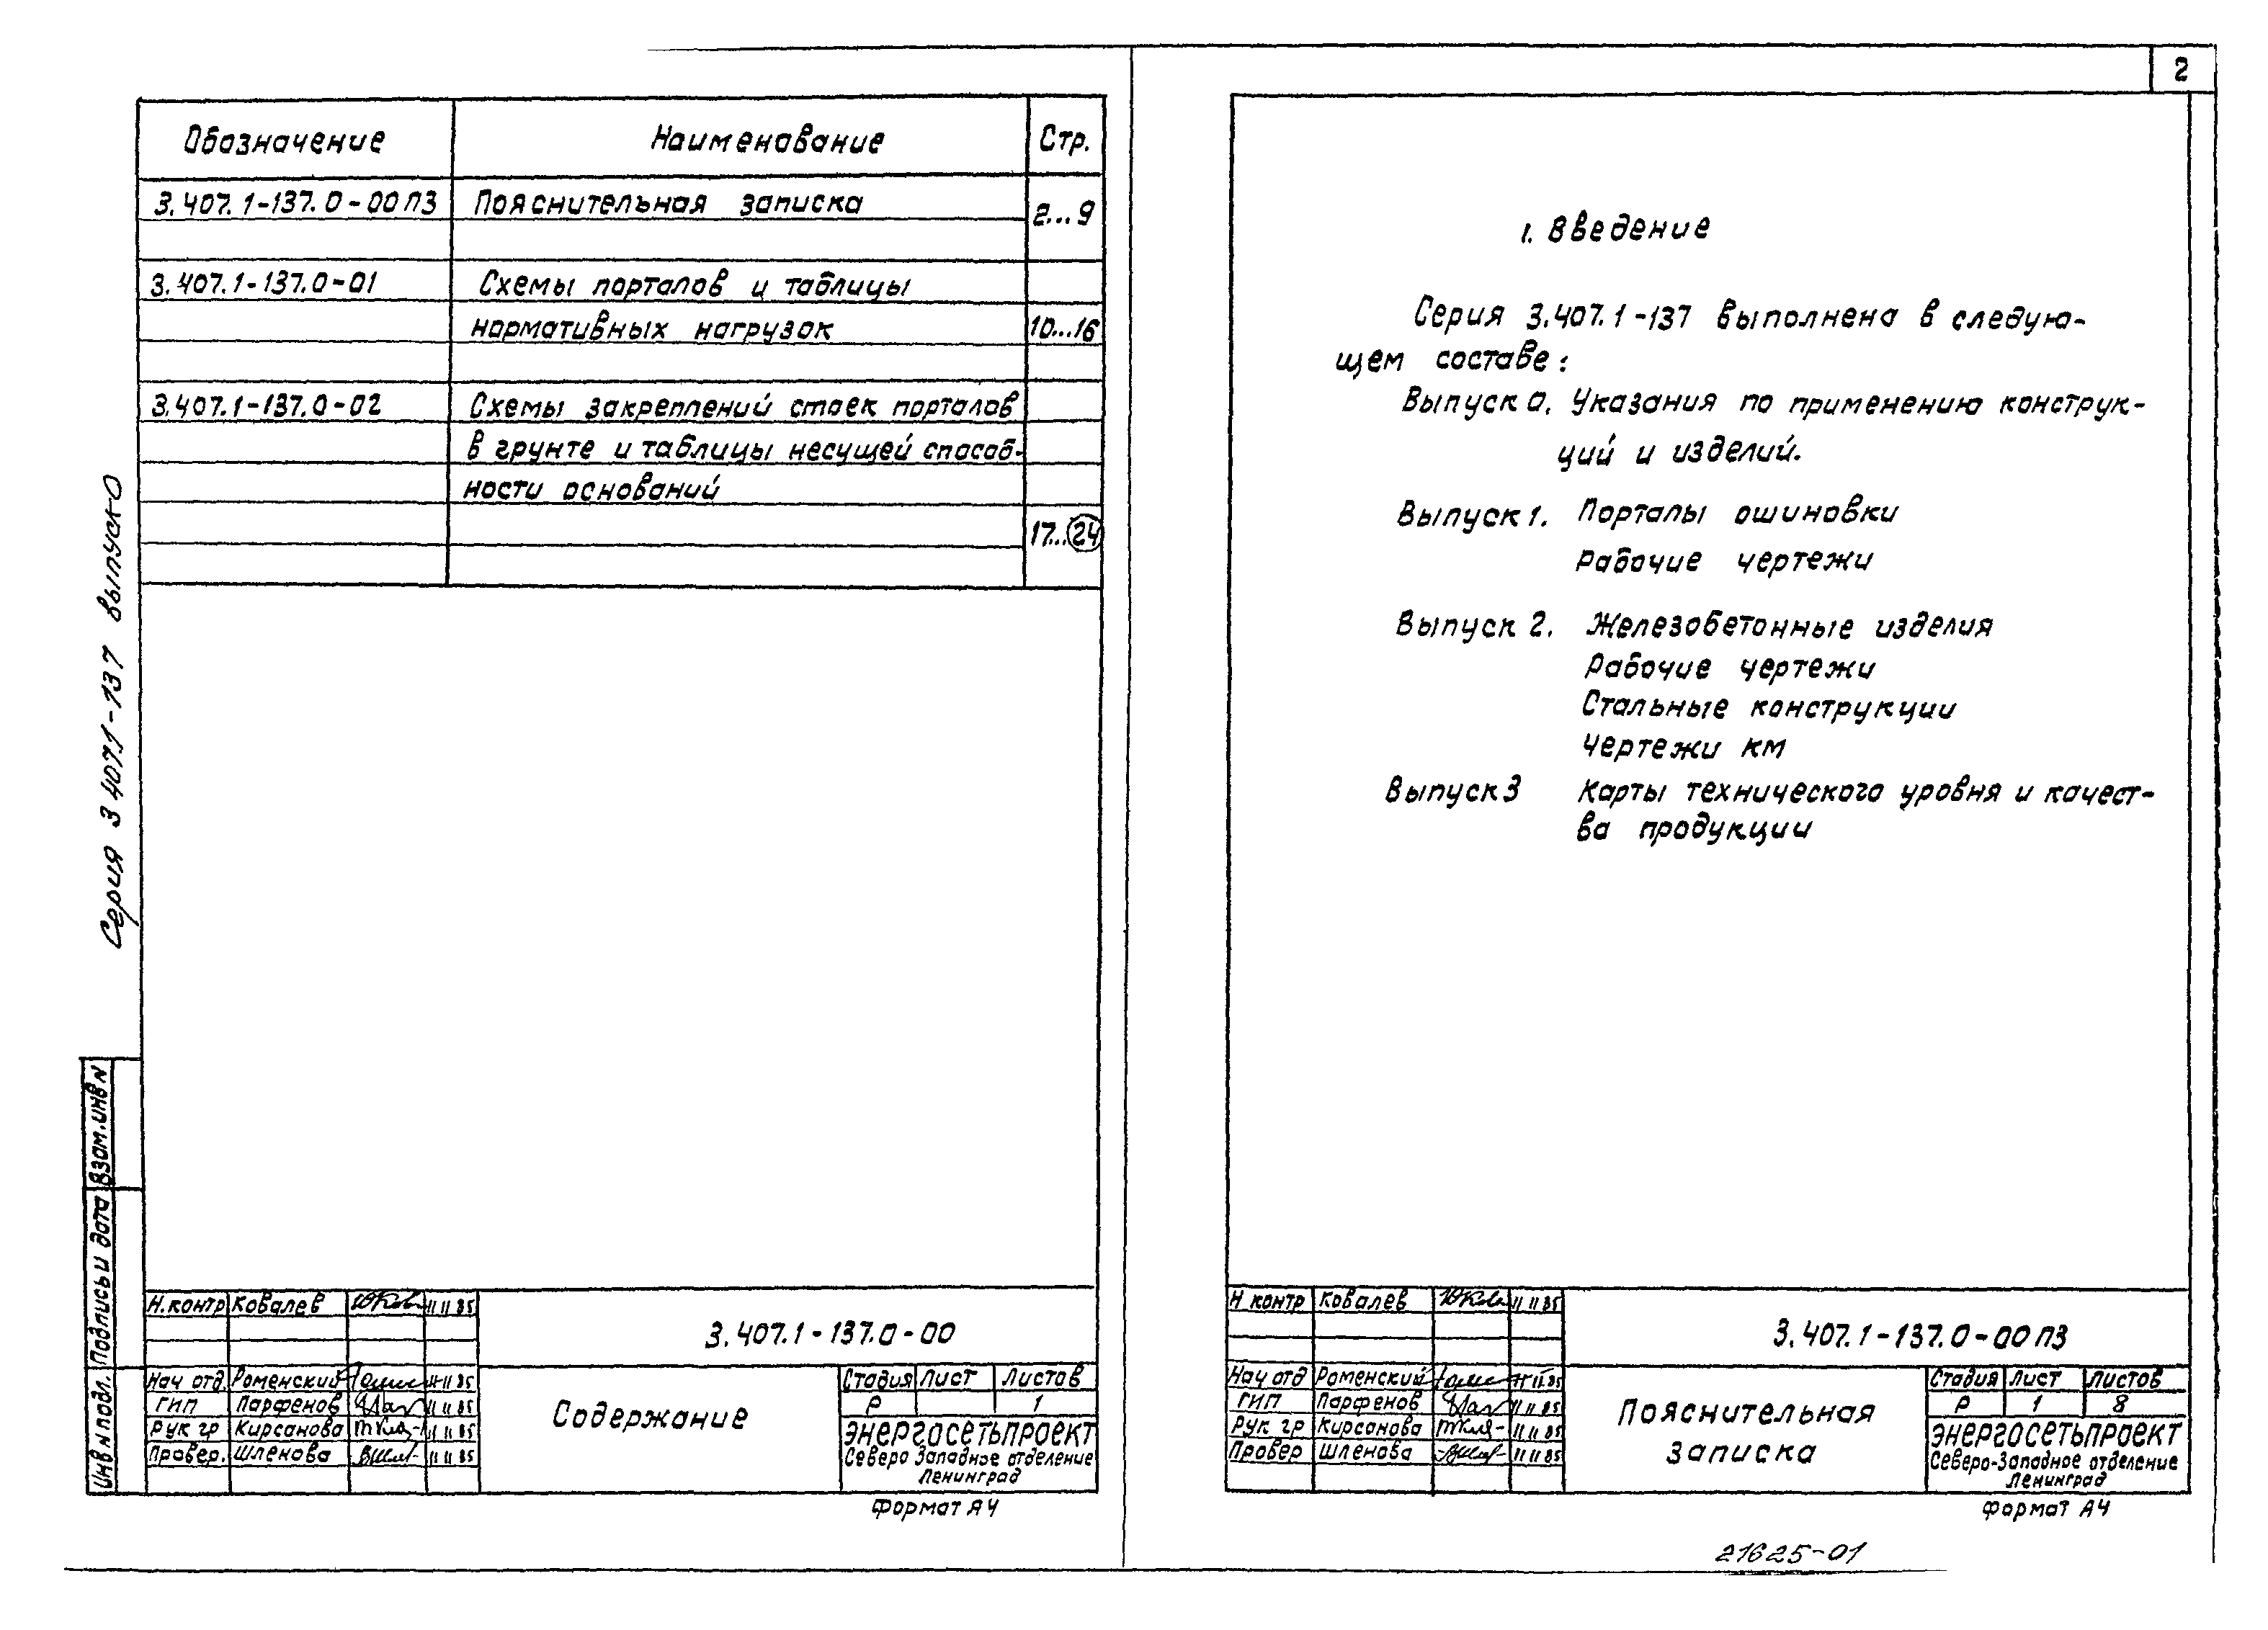 2
Обозначение Наименование Стр.
3.407.1-137.0-00ПЗ Пояснительная записка 2...9
3.407.1-137.0-01 Схемы порталов и таблицы
нормативных нагрузок 10...16
3.407.1-137.0-02 Схемы закреплений стоек порталов
в грунте и таблицы несущей способ-
ности оснований
17...24
Серия 3 407.1-137 выпуск 0
Взам.инв N
Подпись и дата
Инв N подл.
Н.контр Ковалев 11 11 85
3.407.1-137.0-00
Нач отд. Роменский 11 11 85
ГИП Парфенов 11 11 85
Рук гр Кирсанова 11 11 85
Провер. Шленова 11 11 85
Содержание
Стадия Лист Листов
Р 1
ЭНЕРГОСЕТЬПРОЕКТ
Северо Западное отделение
Ленинград
Формат А4
1. Введение
Серия 3.407.1-137 выполнена в следую-
щем составе:
Выпуск 0. Указания по применению конструк-
ций и изделий.
Выпуск 1. Порталы ошиновки
Рабочие чертежи
Выпуск 2. Железобетонные изделия
Рабочие чертежи
Стальные конструкции
Чертежи КМ
Выпуск 3 Карты технического уровня и качест-
ва продукции
Н контр Ковалев 11 11 85
3.407.1-137.0-00ПЗ
Нач отд Роменский 11 11.85
ГИП Парфенов 11 11 85
Рук гр Кирсанова 11 11 85
Провер Шленова 11 11 85
Пояснительная
записка
Стадия Лист Листов
Р 1 8
ЭНЕРГОСЕТЬПРОЕКТ
Северо-Западное отделение
Ленинград
Формат А4
21625-01